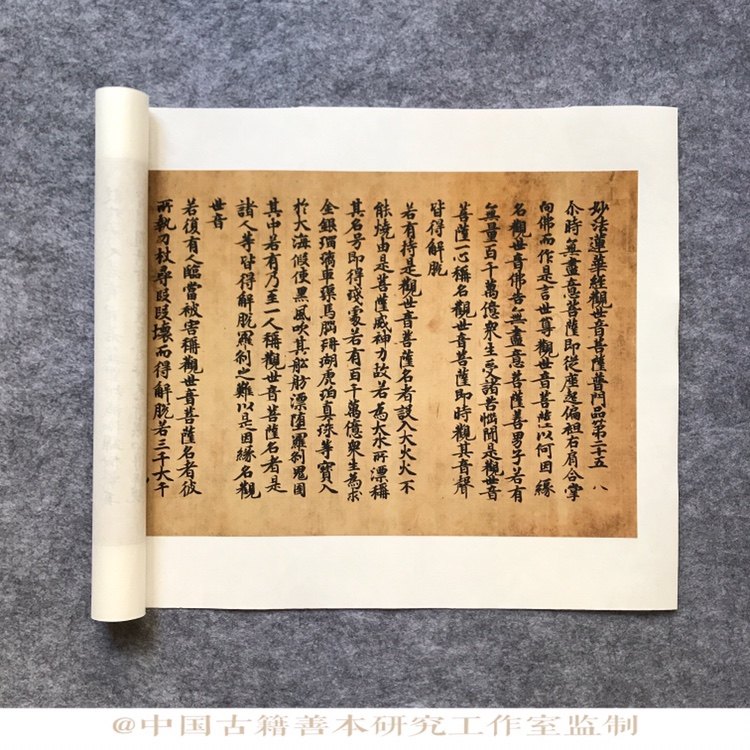 妙法蓮華經觀世音菩薩普門品第二十五 八
尒時無盡意菩薩即從座起偏袒右肩合掌
向佛而作是言世尊觀世音菩薩以何因緣
名觀世音佛告無盡意菩薩善男子若有
無量百千萬億衆生受諸苦惱聞是觀世音
菩薩一心稱名觀世音菩薩即時觀其音聲
皆得解脫
若有持是觀世音菩薩名者設入大火火不
能燒由是菩薩威神力故若為大水所漂稱
其名号即得淺處若有百千萬億衆生為求
金銀瑠璃車璖馬腦珊瑚虎珀真珠等寶入
於大海假使黑風吹其舩舫漂墮羅剎鬼國
其中若有乃至一人稱觀世音菩薩名者是
諸人等皆得解脫羅剎之難以是因緣名觀
世音
若復有人臨當被害稱觀世音菩薩名者彼
所執刀杖尋段段壞而得解脫若三千大千
@中国古籍善本研究工作室监制